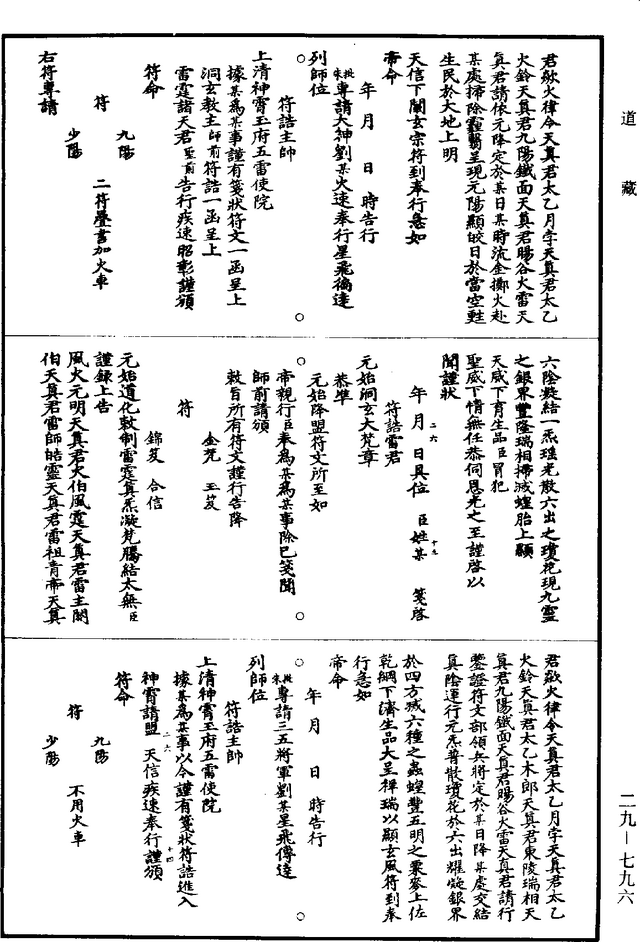 道藏
君歘火律令天真君太乙月孛天真君太乙
火鈴天真君九陽鐵面天真君暘谷火雷天
真君請依元降定於某日某時流金擲火赴
某處掃除靉靆呈現元陽顯皎日於當空甦
生民於大地上明
天信下闡玄宗符到奉行急如
帝命
年 月 日 時告行
批朱專請大神劉某火速奉行星飛偹達
列師位
○ ○
符誥主帥
上清神霄玉府五雷使院
據某為某事謹有箋狀符文一函呈上
洞玄教主師前符誥一函呈上
雷霆諸天君聖前告行疾速昭彰謹頒
符命
九陽
符 二符疊書加火車
少陽
右符專請
六陰凝結一炁瑤光散六出之瓊花現九霊
之銀界豐隆瑞相掃滅蝗胎上顯
天威下育生品臣冒犯
聖威下情無任恭伺恩光之至謹啓以
聞謹狀
年 月二六 日具位 臣姓某十九 箋啓
符誥雷君
元始洞玄大梵章
恭準
元始降盟符文所至如
○ ○
帝親行臣奉為某為某事除已箋聞
師前請頒
敕旨所有符文謹行告降
金梵 玉笈
符
錦笈 合信
元始道化敕制雷霆真炁凝梵騰結太無臣
謹錄上告
風火元明天真君火伯風霆天真君雷主閼
伯天真君雷師皓靈天真君雷祖青帝天真
君歘火律令天真君太乙月孛天真君太乙
火鈴天真君太乙木郎天真君東陵瑞相天
真君九陽鐵面天真君暘谷火雷天真君請行
鑒證符文部領兵將定於某日降某處交結
真陰運行元炁普散瓊花於六出耀凝銀界
於四方滅六種之蟲蝗豐五明之粟麥上佐
乾綱下濟生品大呈禪瑞以顯玄風符到奉
行急如
帝命
年 月 日 時告行
批朱專請三五將軍劉某星飛傳達
○ ○
列師位
符誥主帥
上清神霄玉府五雷使院
據某為某事以今謹有箋狀符誥進入
神霄請盟二六天信疾速奉行謹頒十四
符命
九陽
符 不用火車
少陽
二九—七九六